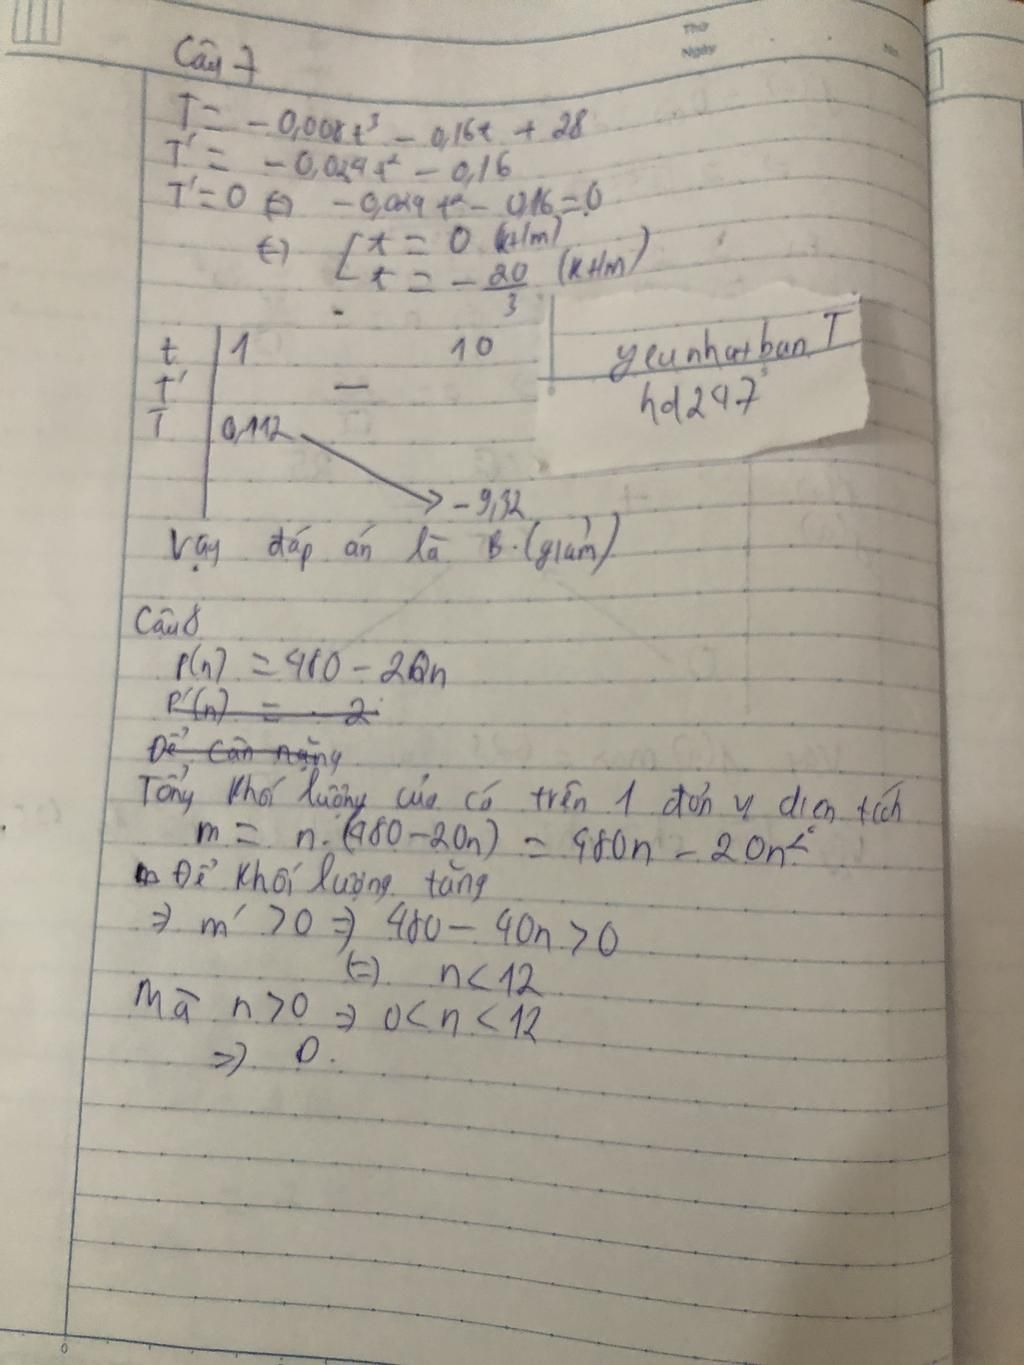 Thứ
Ngày
No.
Câu 7
T = -0,008t³ - 0,16t + 28
T' = -0,024t² - 0,16
T' = 0 ⇔ -0,024t² - 0,16 = 0
⇔ [ t = 0 (ktm)
t = -20/3 (ktm)
t | 1 10
T' | -
T | 0,112
-9,32
yeunhatban T
hd247
Vạy đáp án là B. (giảm)
Câu 8
P(n) = 480 - 20n
P'(n) = - 2
Để cân nặng
Tổng khối lượng của cá trên 1 đơn vị diện tích
m = n. (480 - 20n) = 480n - 20n²
Để khối lượng tăng
⇒ m' > 0 ⇒ 480 - 40n > 0
⇔ n < 12
Mà n > 0 ⇒ 0 < n < 12
⇒ D.
0